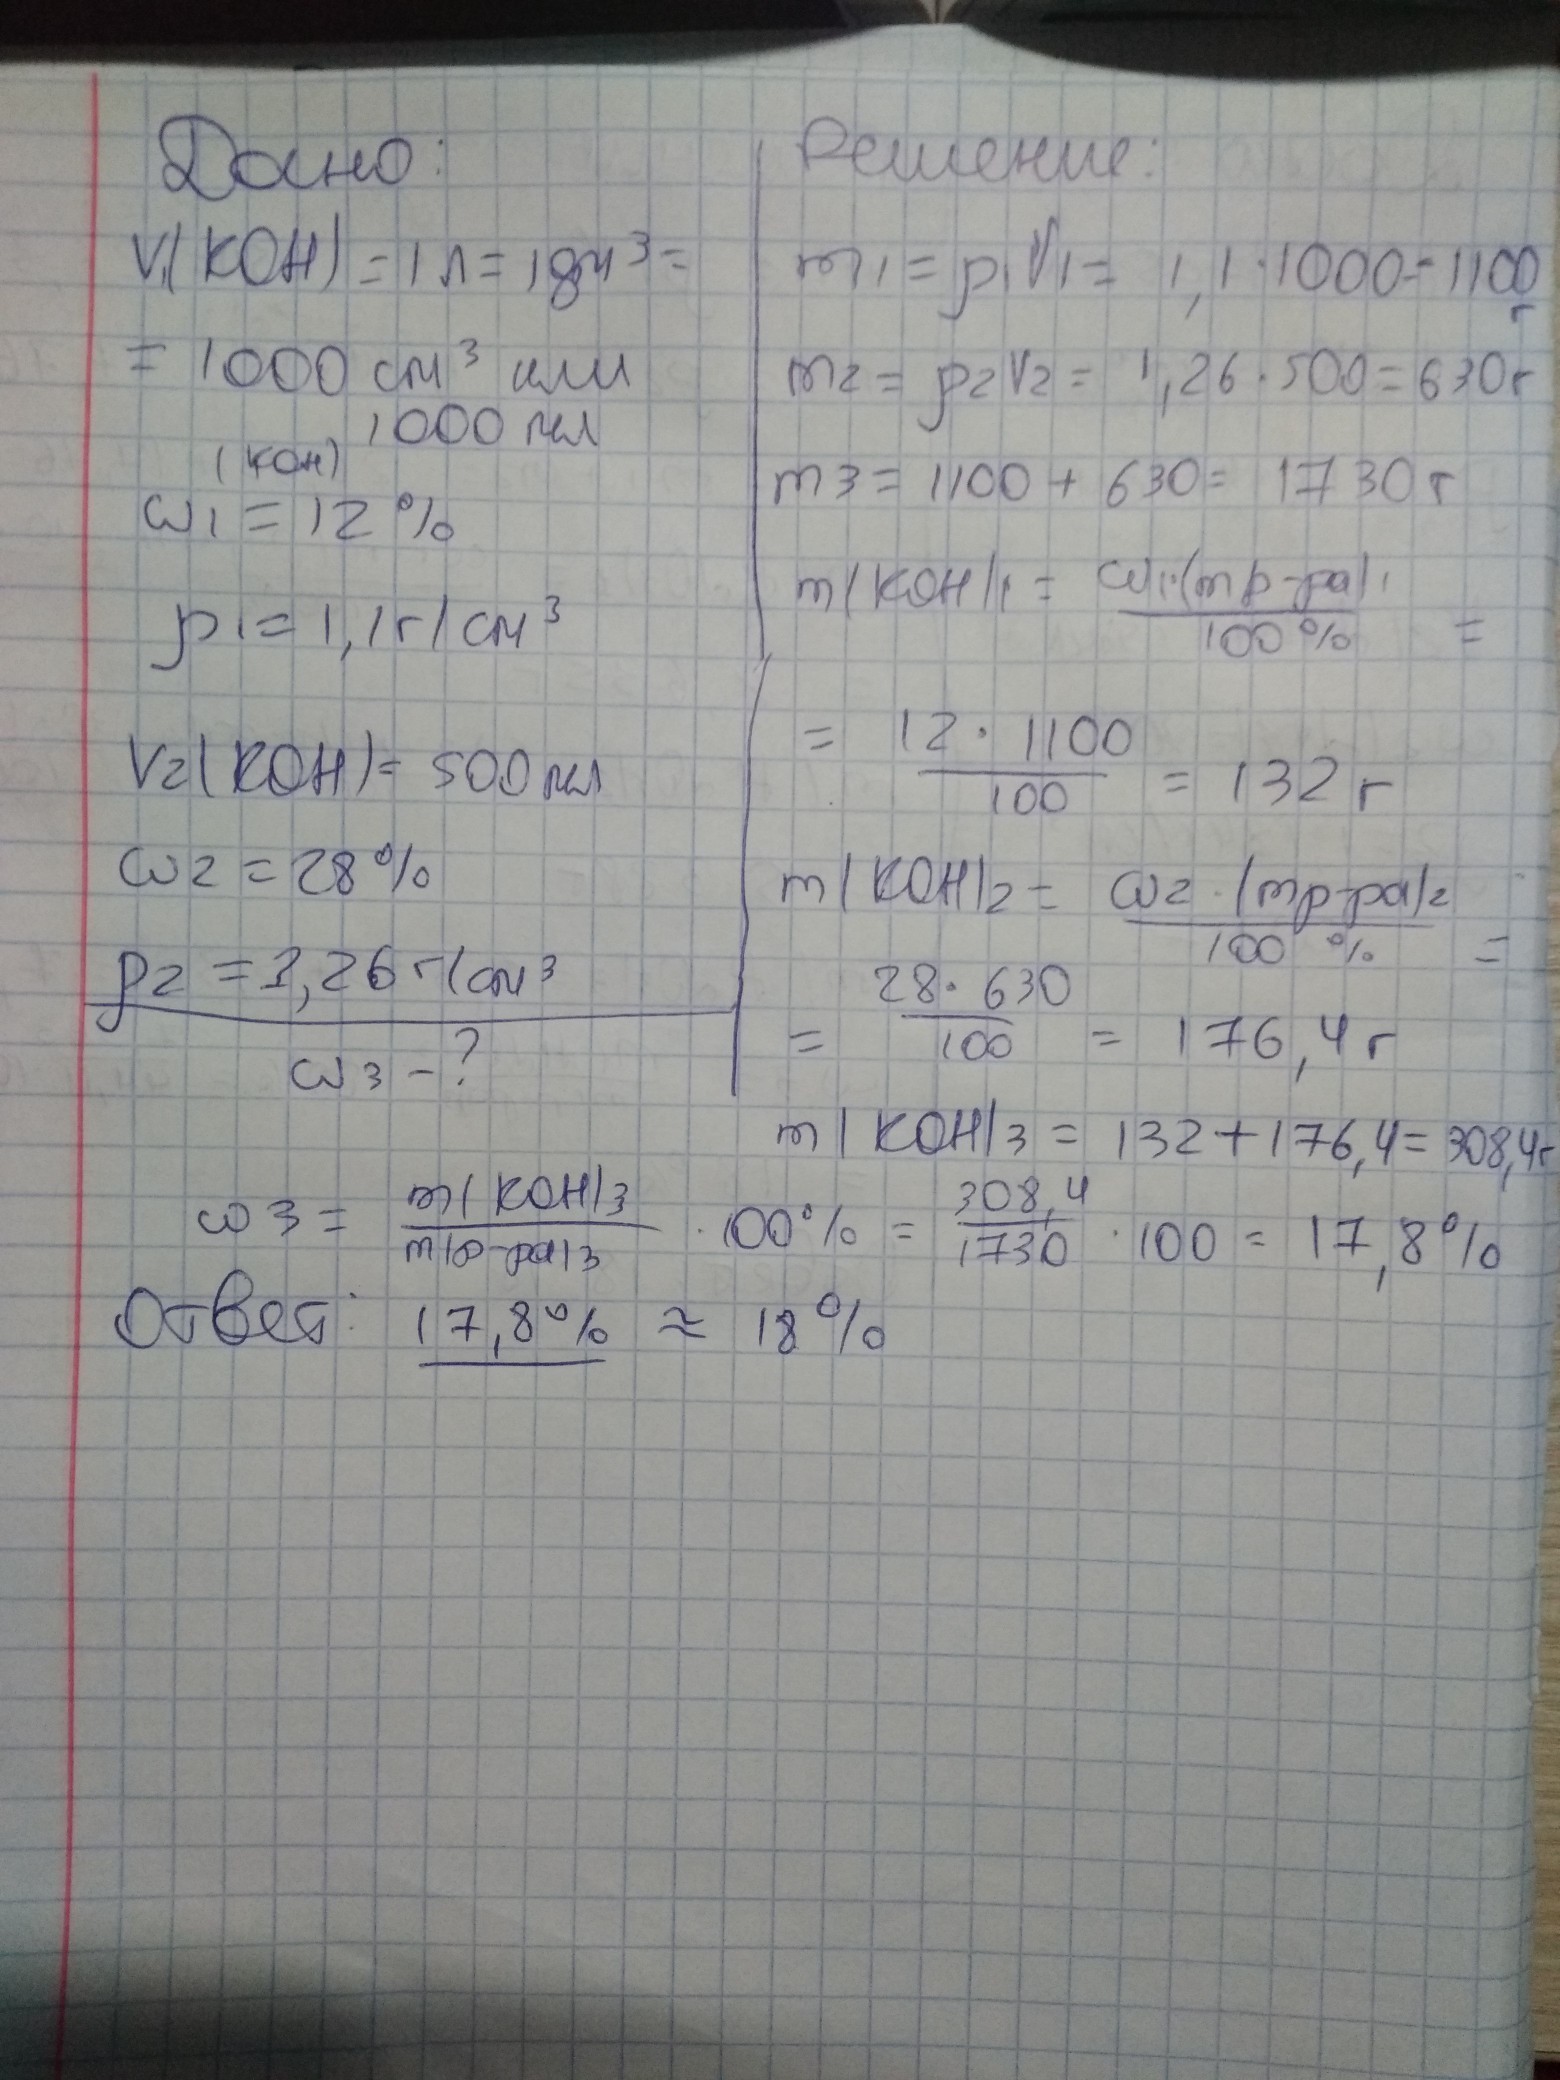 Дано:
V1(KOH) = 1 л = 1дм³ =
= 1000 см³ или
1000 мл
(KOH)
ω1 = 12 %
ρ1 = 1,1 г/см³
V2(KOH) = 500 мл
ω2 = 28 %
ρ2 = 1,26 г/см³
ω3 - ?
Решение:
m1 = ρ1V1 = 1,1 · 1000 = 1100 г
m2 = ρ2V2 = 1,26 · 500 = 630 г
m3 = 1100 + 630 = 1730 г
m(KOH)1 = ω1·(mр-ра)1 / 100 % =
= 12 · 1100 / 100 = 132 г
m(KOH)2 = ω2 · (mр-ра)2 / 100 % =
= 28 · 630 / 100 = 176,4 г
m(KOH)3 = 132 + 176,4 = 308,4 г
ω3 = m(KOH)3 / m(р-ра)3 · 100 % = 308,4 / 1730 · 100 = 17,8 %
Ответ: 17,8 % ≈ 18 %